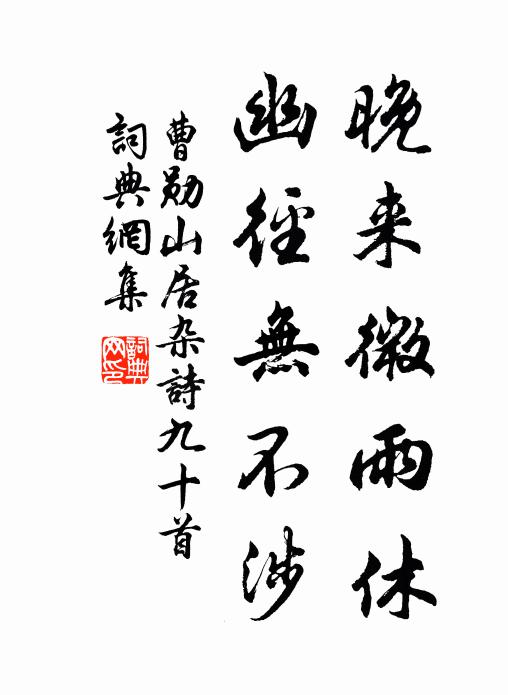 晚来微雨休
幽徑無不涉
曹勛山居杂詩九十首
詞典網集
詞典網印